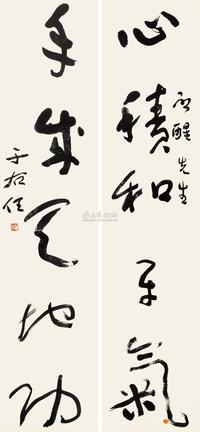 心積和平氣
啟醒先生
手成天地功
于右任